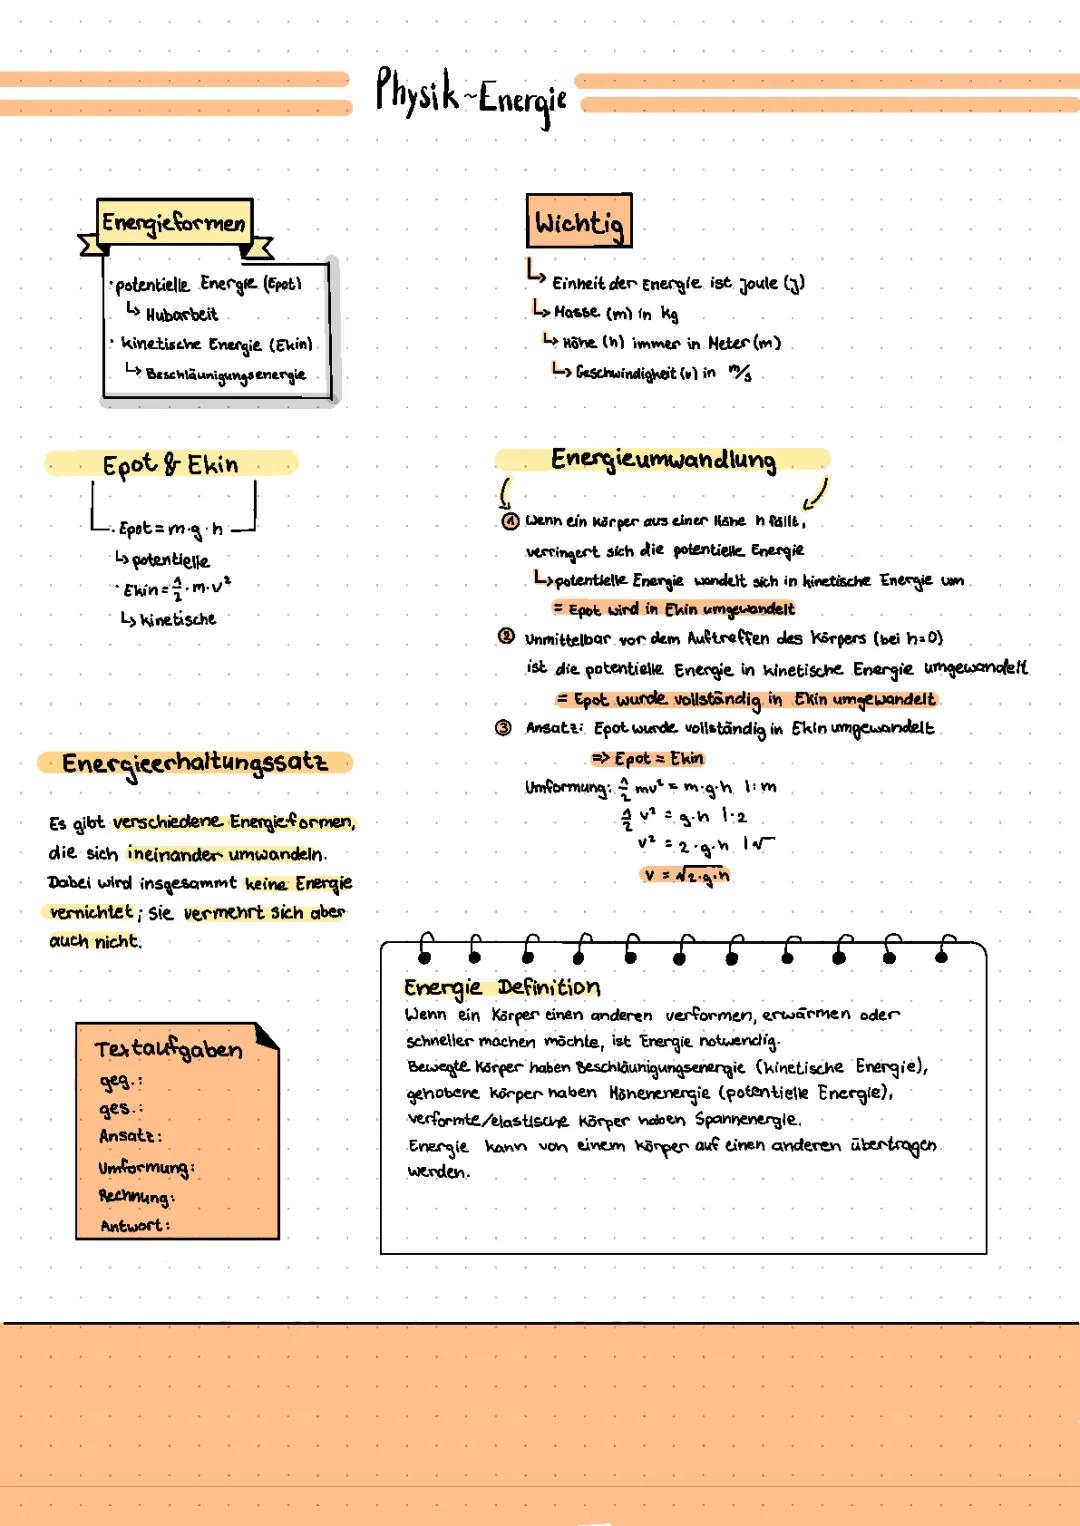 Physik ~ Energie
Energieformen
· potentielle Energie (Epot)
↳ Hubarbeit
· kinetische Energie (Ekin)
↳ Beschläunigungsenergie
Wichtig
↳ Einheit der Energie ist Joule (J)
↳ Masse (m) in kg
↳ Höhe (h) immer in Meter (m)
↳ Geschwindigkeit (v) in m/s
Epot & Ekin
· Epot = m·g·h
↳ potentielle
· Ekin = 1/2 · m · v²
↳ kinetische
Energieumwandlung
① Wenn ein Körper aus einer Höhe h fällt,
verringert sich die potentielle Energie
↳ potentielle Energie wandelt sich in kinetische Energie um
= Epot wird in Ekin umgewandelt
② Unmittelbar vor dem Auftreffen des Körpers (bei h=0)
ist die potentielle Energie in kinetische Energie umgewandelt
= Epot wurde vollständig in Ekin umgewandelt
③ Ansatz: Epot wurde vollständig in Ekin umgewandelt
=> Epot = Ekin
Umformung: 1/2 mv² = m·g·h |:m
1/2 v² = g·h |·2
v² = 2·g·h |√
v = √2·g·h
Energieerhaltungssatz
Es gibt verschiedene Energieformen,
die sich ineinander umwandeln.
Dabei wird insgesammt keine Energie
vernichtet; sie vermehrt sich aber
auch nicht.
Textaufgaben
geg.:
ges.:
Ansatz:
Umformung:
Rechnung:
Antwort:
Energie Definition
Wenn ein Körper einen anderen verformen, erwärmen oder
schneller machen möchte, ist Energie notwendig.
Bewegte Körper haben Beschläunigungsenergie (kinetische Energie),
gehobene Körper haben Höhenenergie (potentielle Energie),
verformte/elastische Körper haben Spannenergie.
Energie kann von einem Körper auf einen anderen übertragen
werden.